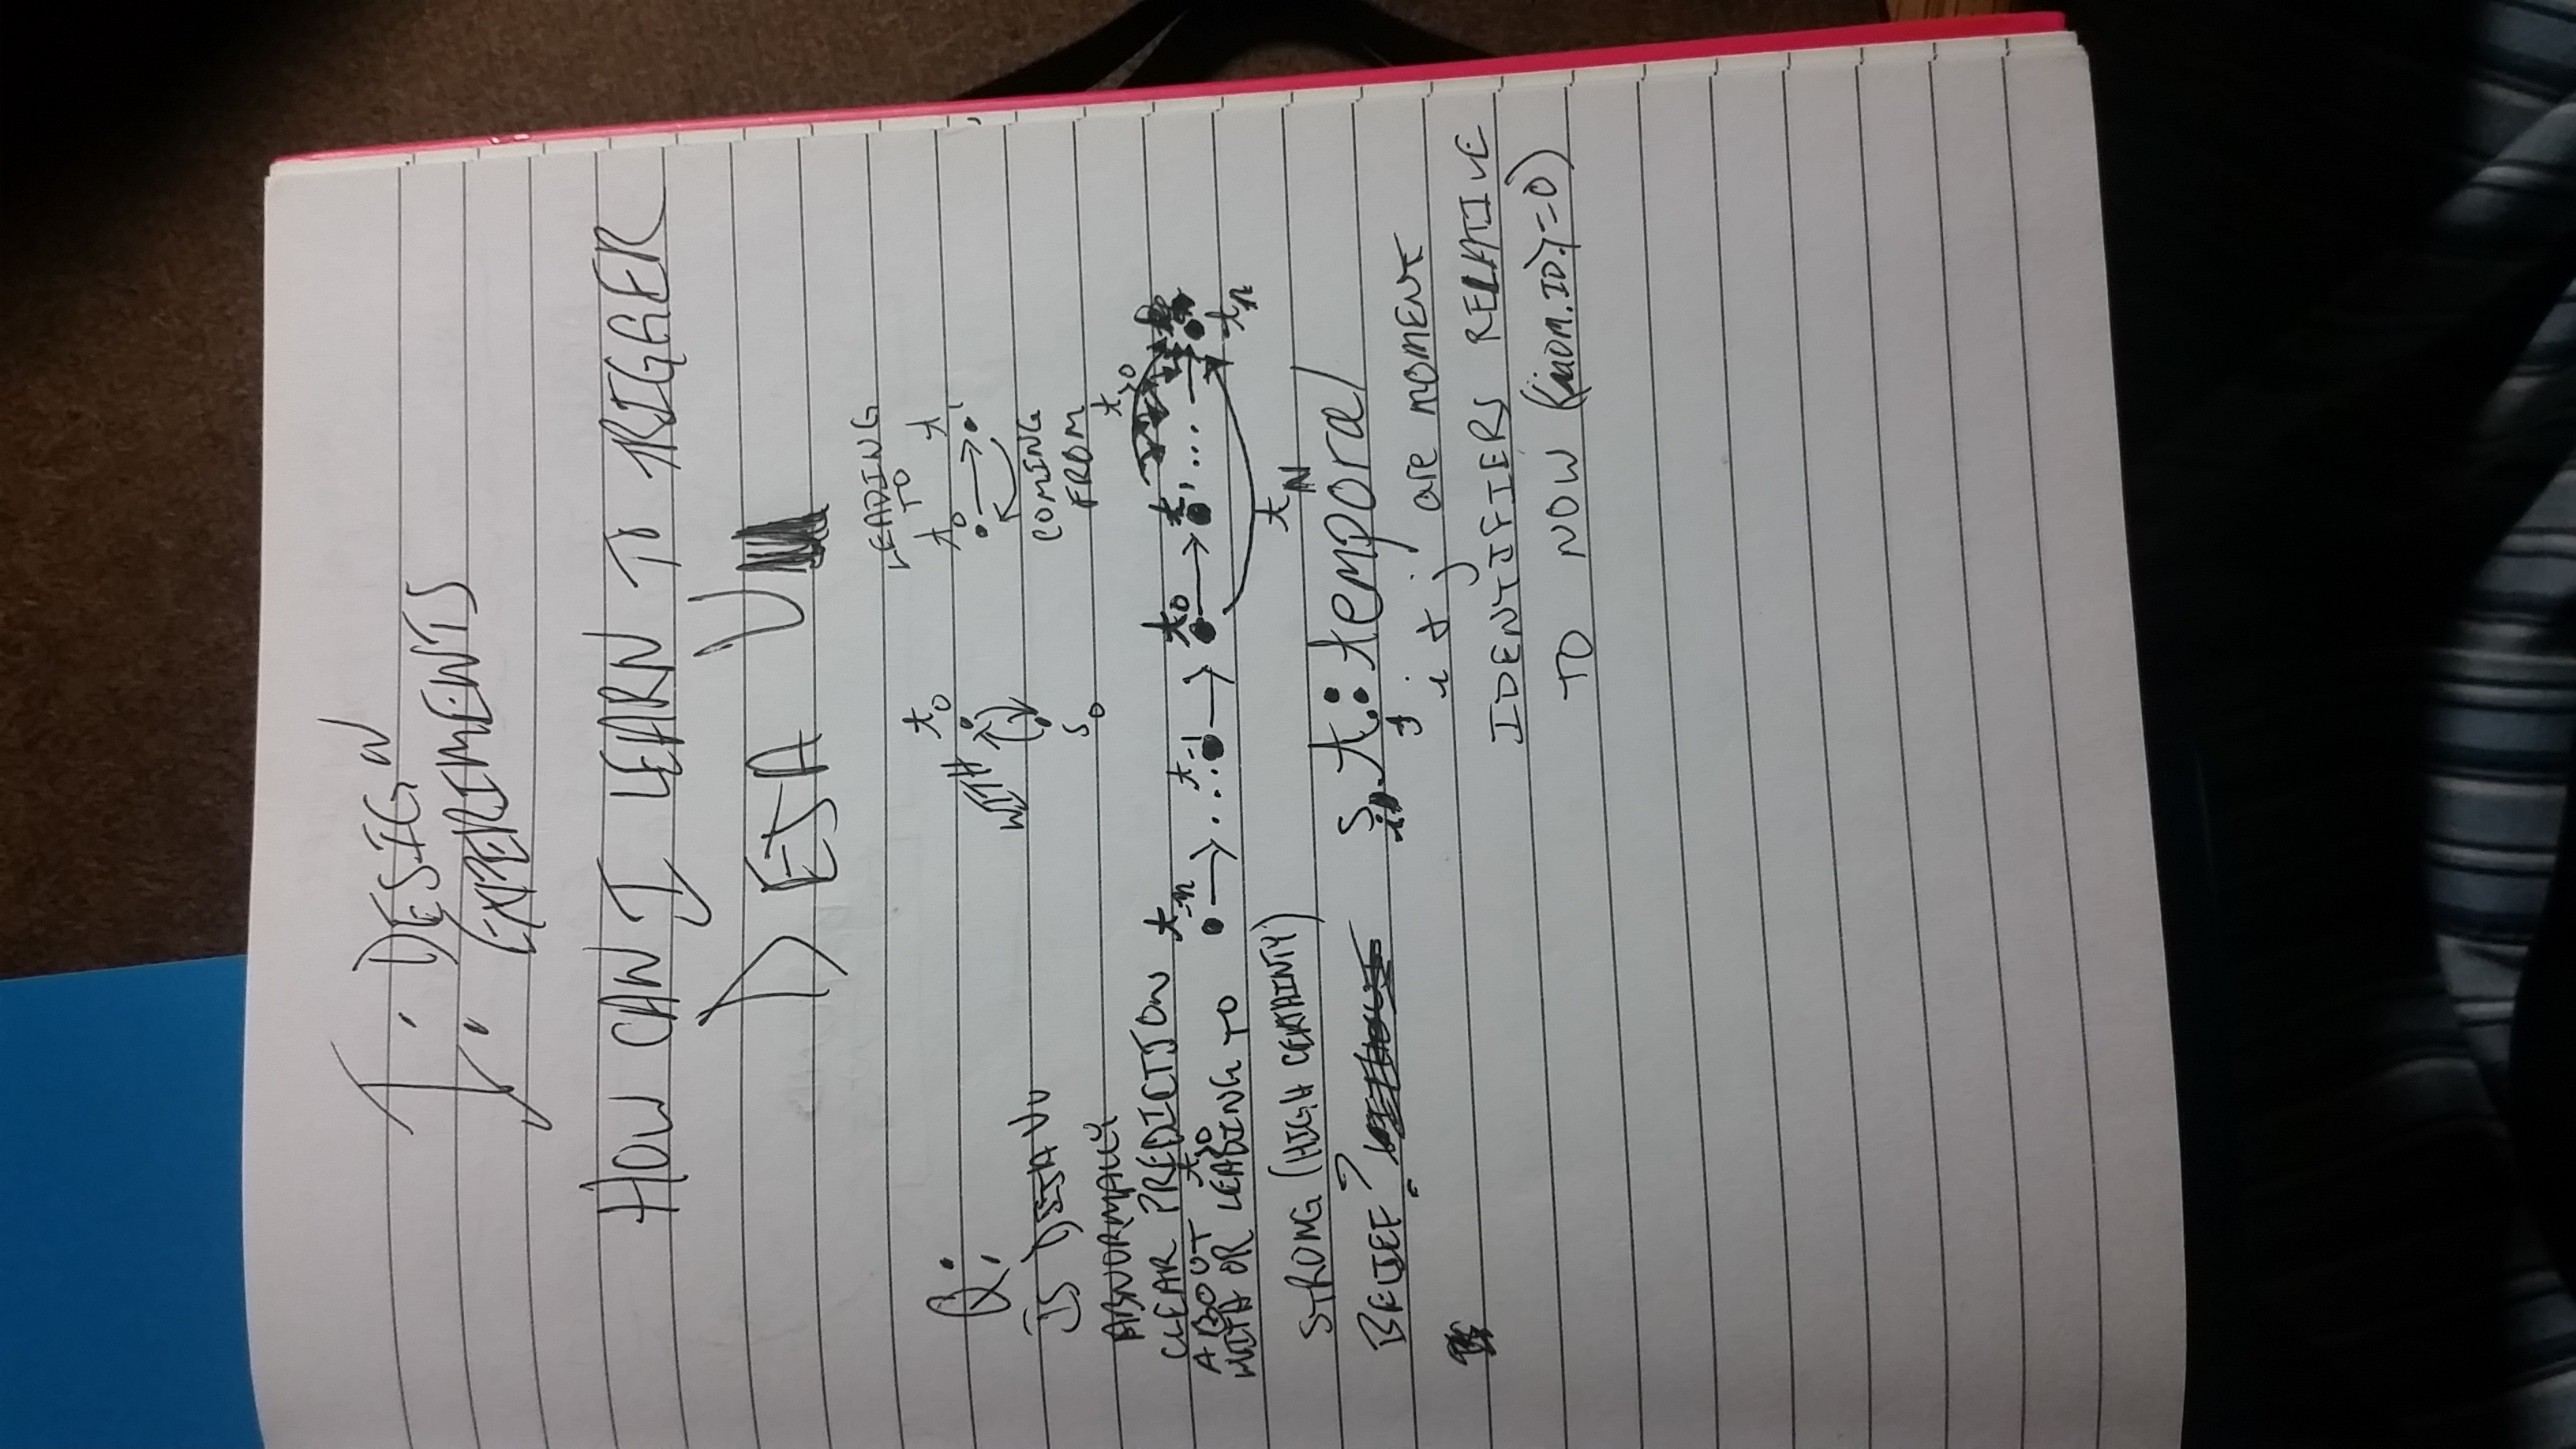 I: DESIGN
EXPERIMENTS
HOW CAN I LEARN TO TRIGGER
DEJA V
Q:
IS DEJA VU
ABNORMALLY
CLEAR PREDICTION
ABOUT t>0
WITH OR LEADING TO
STRONG (HIGH CERTAINTY)
BELIEF?
t0
WITH
s0
LEADING
TO
t0 t1
COMING
FROM
t>0
t-n → ...t-1 → t0 → t1 ... → tn
tN
si, tj: temporal
i & j are MOMENT
IDENTIFIERS RELATIVE
TO NOW (mom.ID.=0)